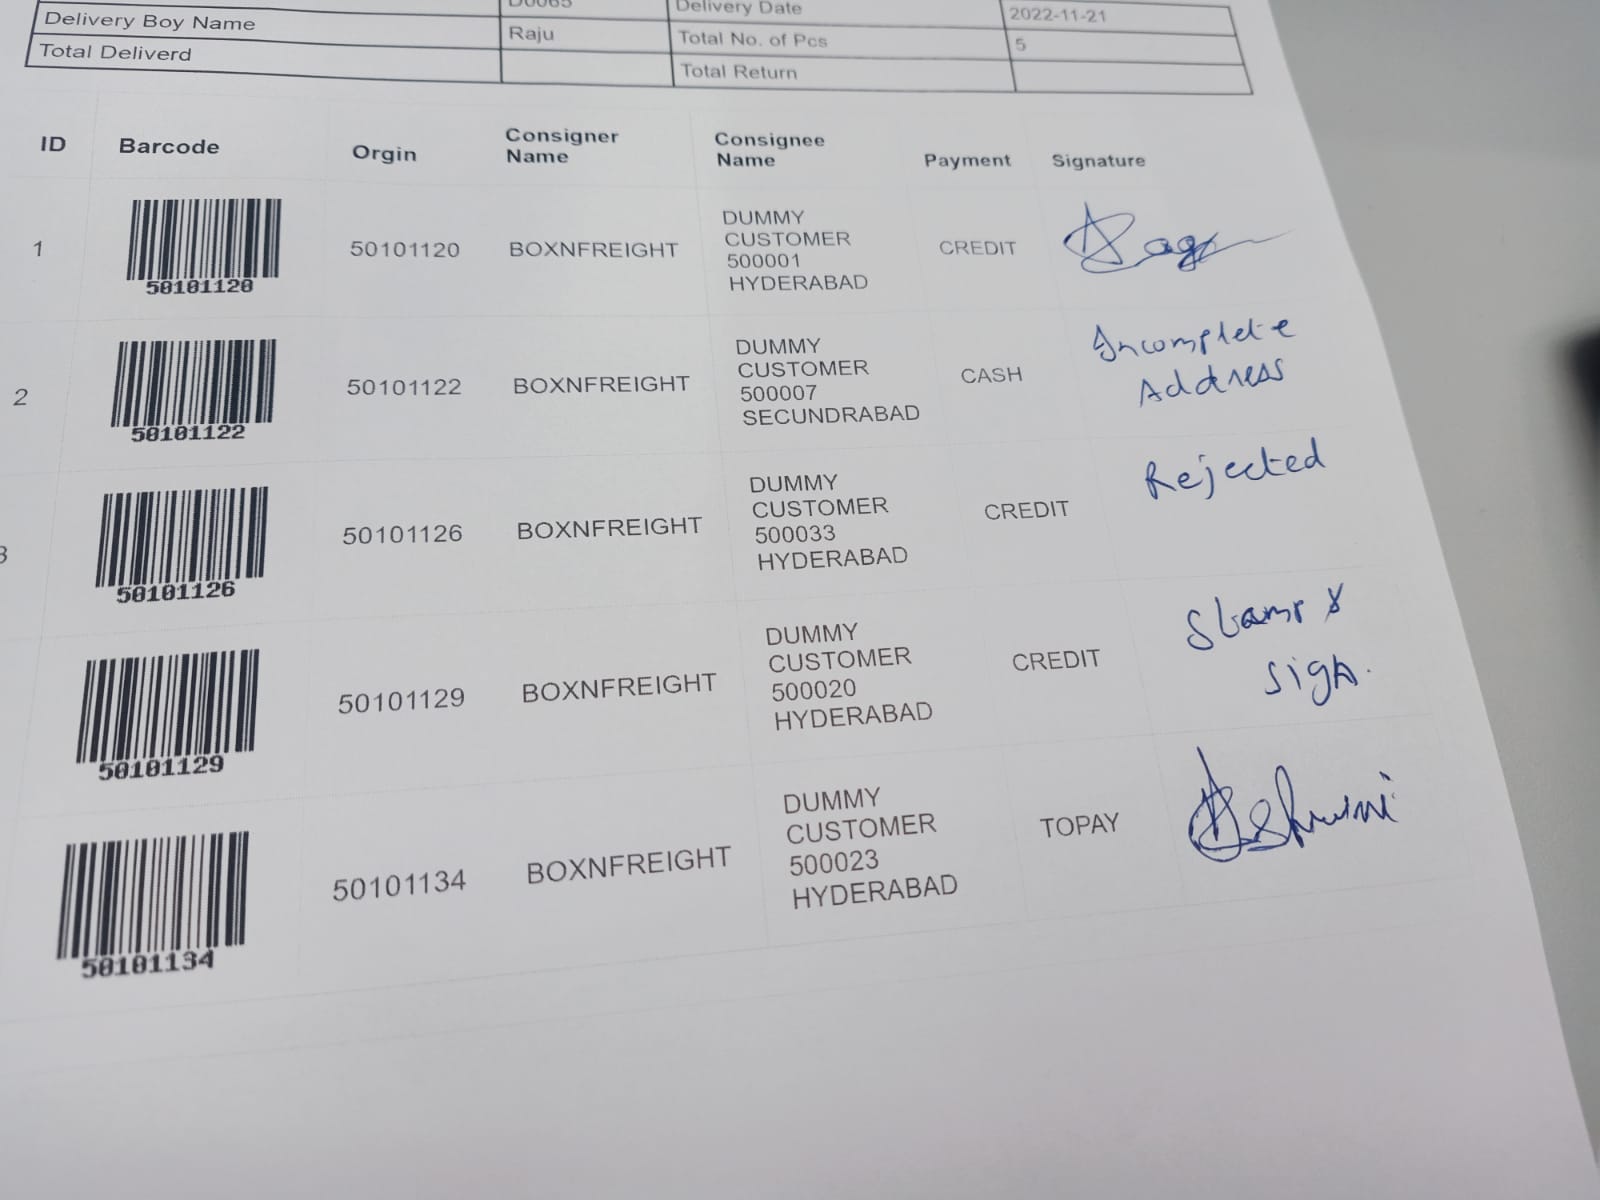 D0065 Delivery Date 2022-11-21
Delivery Boy Name Raju Total No. of Pcs 5
Total Deliverd Total Return
ID Barcode Orgin Consigner Name Consignee Name Payment Signature
1 50101120 50101120 BOXNFREIGHT CREDIT
DUMMY
CUSTOMER
500001
HYDERABAD
2 50101122 50101122 BOXNFREIGHT CASH
DUMMY
CUSTOMER
500007
SECUNDRABAD
Incomplete
Address
3 50101126 50101126 BOXNFREIGHT CREDIT
DUMMY
CUSTOMER
500033
HYDERABAD
Rejected
50101129 50101129 BOXNFREIGHT CREDIT
DUMMY
CUSTOMER
500020
HYDERABAD
Stamp &
sign.
50101134 50101134 BOXNFREIGHT TOPAY
DUMMY
CUSTOMER
500023
HYDERABAD
Ashwini